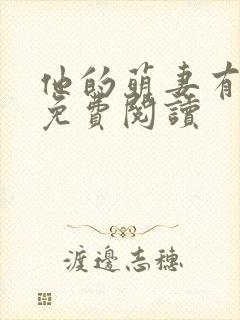 他的萌妻有
免費閱讀
渡邊志穗